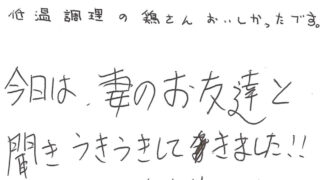 低温調理の鶏さんおいしかったです。
今日は、妻のお友達と
聞きうきうきしてきました!!